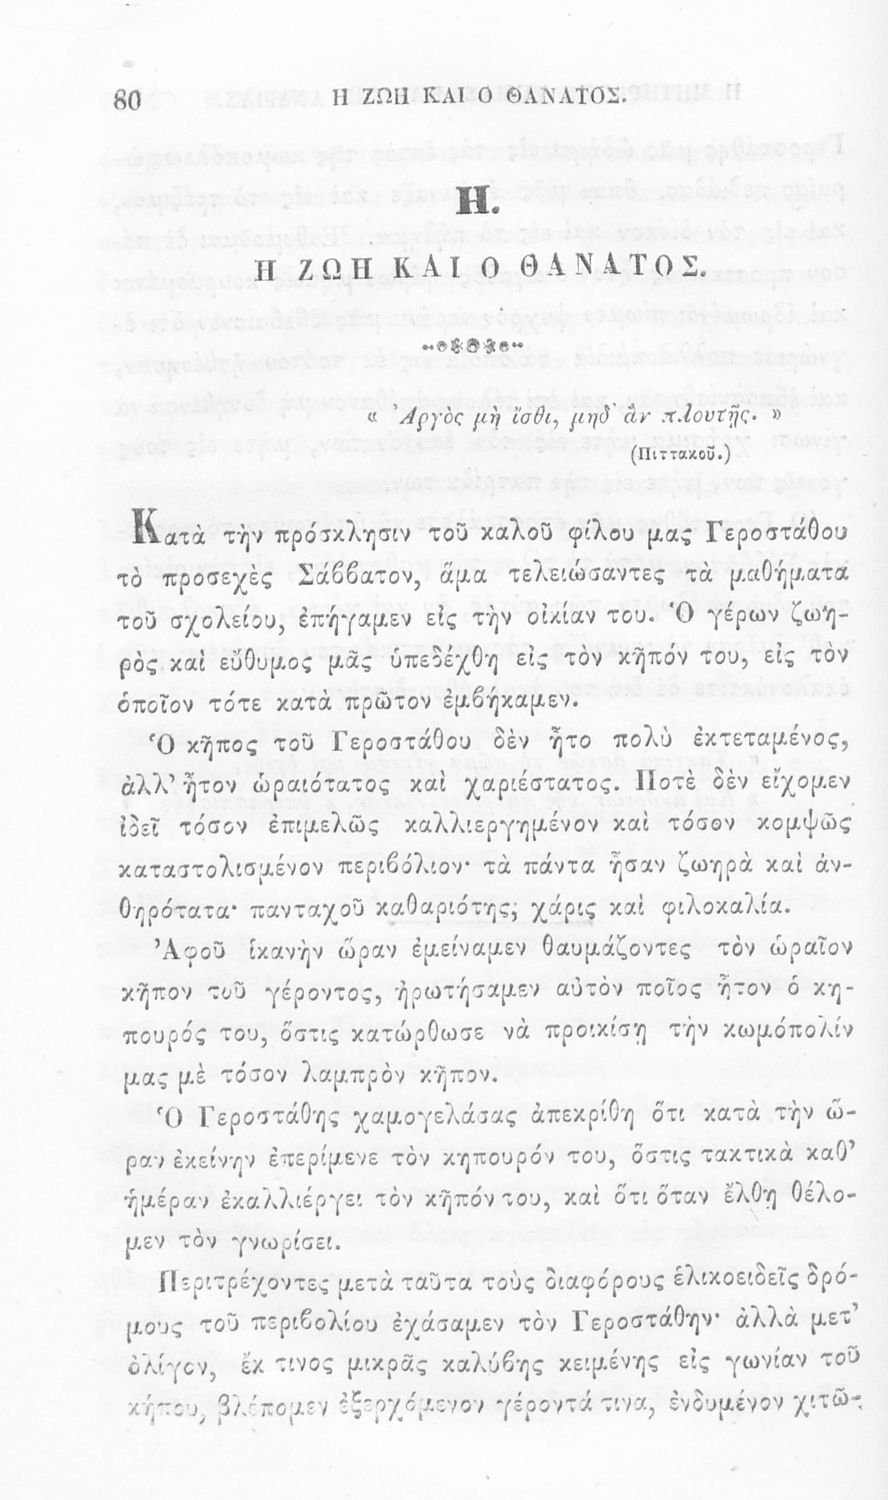 80 Η ΖΩΗ ΚΑΙ Ο ΘΑΝΑΤΟΣ.
Η.
Η ΖΩΗ ΚΑΙ Ο ΘΑΝΑΤΟΣ.
« Ἀργὸς μὴ ἴσθι, μηδ' ἂν πλουτῇς. »
(Πιττακοῦ.)
Κατὰ τὴν πρόσκλησιν τοῦ καλοῦ φίλου μας Γεροστάθου
τὸ προσεχὲς Σάββατον, ἅμα τελειώσαντες τὰ μαθήματα
τοῦ σχολείου, ἐπήγαμεν εἰς τὴν οἰκίαν του. Ὁ γέρων ζωη-
ρὸς καὶ εὔθυμος μᾶς ὑπεδέχθη εἰς τὸν κῆπόν του, εἰς τὸν
ὁποῖον τότε κατὰ πρῶτον ἐμβήκαμεν.
Ὁ κῆπος τοῦ Γεροστάθου δὲν ἦτο πολὺ ἐκτεταμένος,
ἀλλ' ἦτον ὡραιότατος καὶ χαριέστατος. Ποτὲ δὲν εἴχομεν
ἰδεῖ τόσον ἐπιμελῶς καλλιεργημένον καὶ τόσον κομψῶς
καταστολισμένον περιβόλιον· τὰ πάντα ἦσαν ζωηρὰ καὶ ἀν-
θηρότατα· πανταχοῦ καθαριότης, χάρις καὶ φιλοκαλία.
Ἀφοῦ ἱκανὴν ὥραν ἐμείναμεν θαυμάζοντες τὸν ὡραῖον
κῆπον τοῦ γέροντος, ἠρωτήσαμεν αὐτὸν ποῖος ἦτον ὁ κη-
πουρός του, ὅστις κατώρθωσε νὰ προικίσῃ τὴν κωμόπολίν
μας μὲ τόσον λαμπρὸν κῆπον.
Ὁ Γεροστάθης χαμογελάσας ἀπεκρίθη ὅτι κατὰ τὴν ὥ-
ραν ἐκείνην ἐπερίμενε τὸν κηπουρόν του, ὅστις τακτικὰ καθ'
ἡμέραν ἐκαλλιέργει τὸν κῆπόν του, καὶ ὅτι ὅταν ἔλθῃ θέλο-
μεν τὸν γνωρίσει.
Περιτρέχοντες μετὰ ταῦτα τοὺς διαφόρους ἑλικοειδεῖς δρό-
μους τοῦ περιβολίου ἐχάσαμεν τὸν Γεροστάθην· ἀλλὰ μετ'
ὀλίγον, ἔκ τινος μικρᾶς καλύβης κειμένης εἰς γωνίαν τοῦ
κήπου, βλέπομεν ἐξερχόμενον γέροντά τινα, ἐνδυμένον χιτῶ-